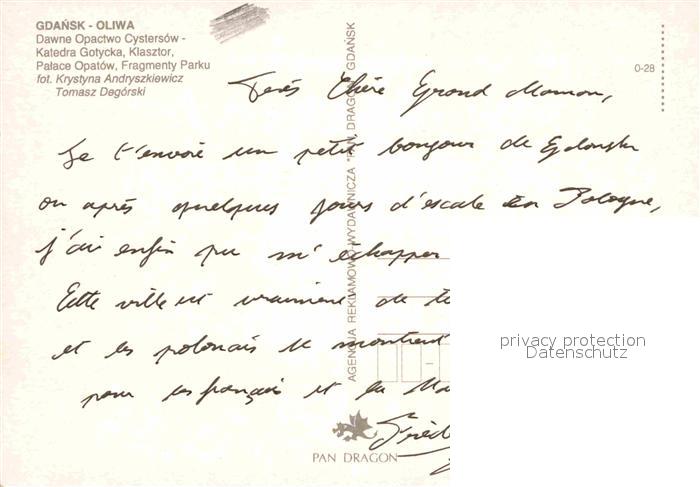 GDAŃSK - OLIWA
Dawne Opactwo Cystersów -
Katedra Gotycka, Klasztor,
Pałace Opatów, Fragmenty Parku
fot. Krystyna Andryszkiewicz
Tomasz Degórski
0-28
AGENCJA REKLAMOWO-WYDAWNICZA "PAN DRAGON" GDAŃSK
Très Chère Grand Maman,
Je t'envoie un petit bonjour de Gdansk
ou après quelques jours d'escale en Pologne,
j'ai enfin pu m'échapper
Cette ville est vraiment de
et les polonais se montrent
pour les français et la
Fréd
PAN DRAGON
privacy protection
Datenschutz